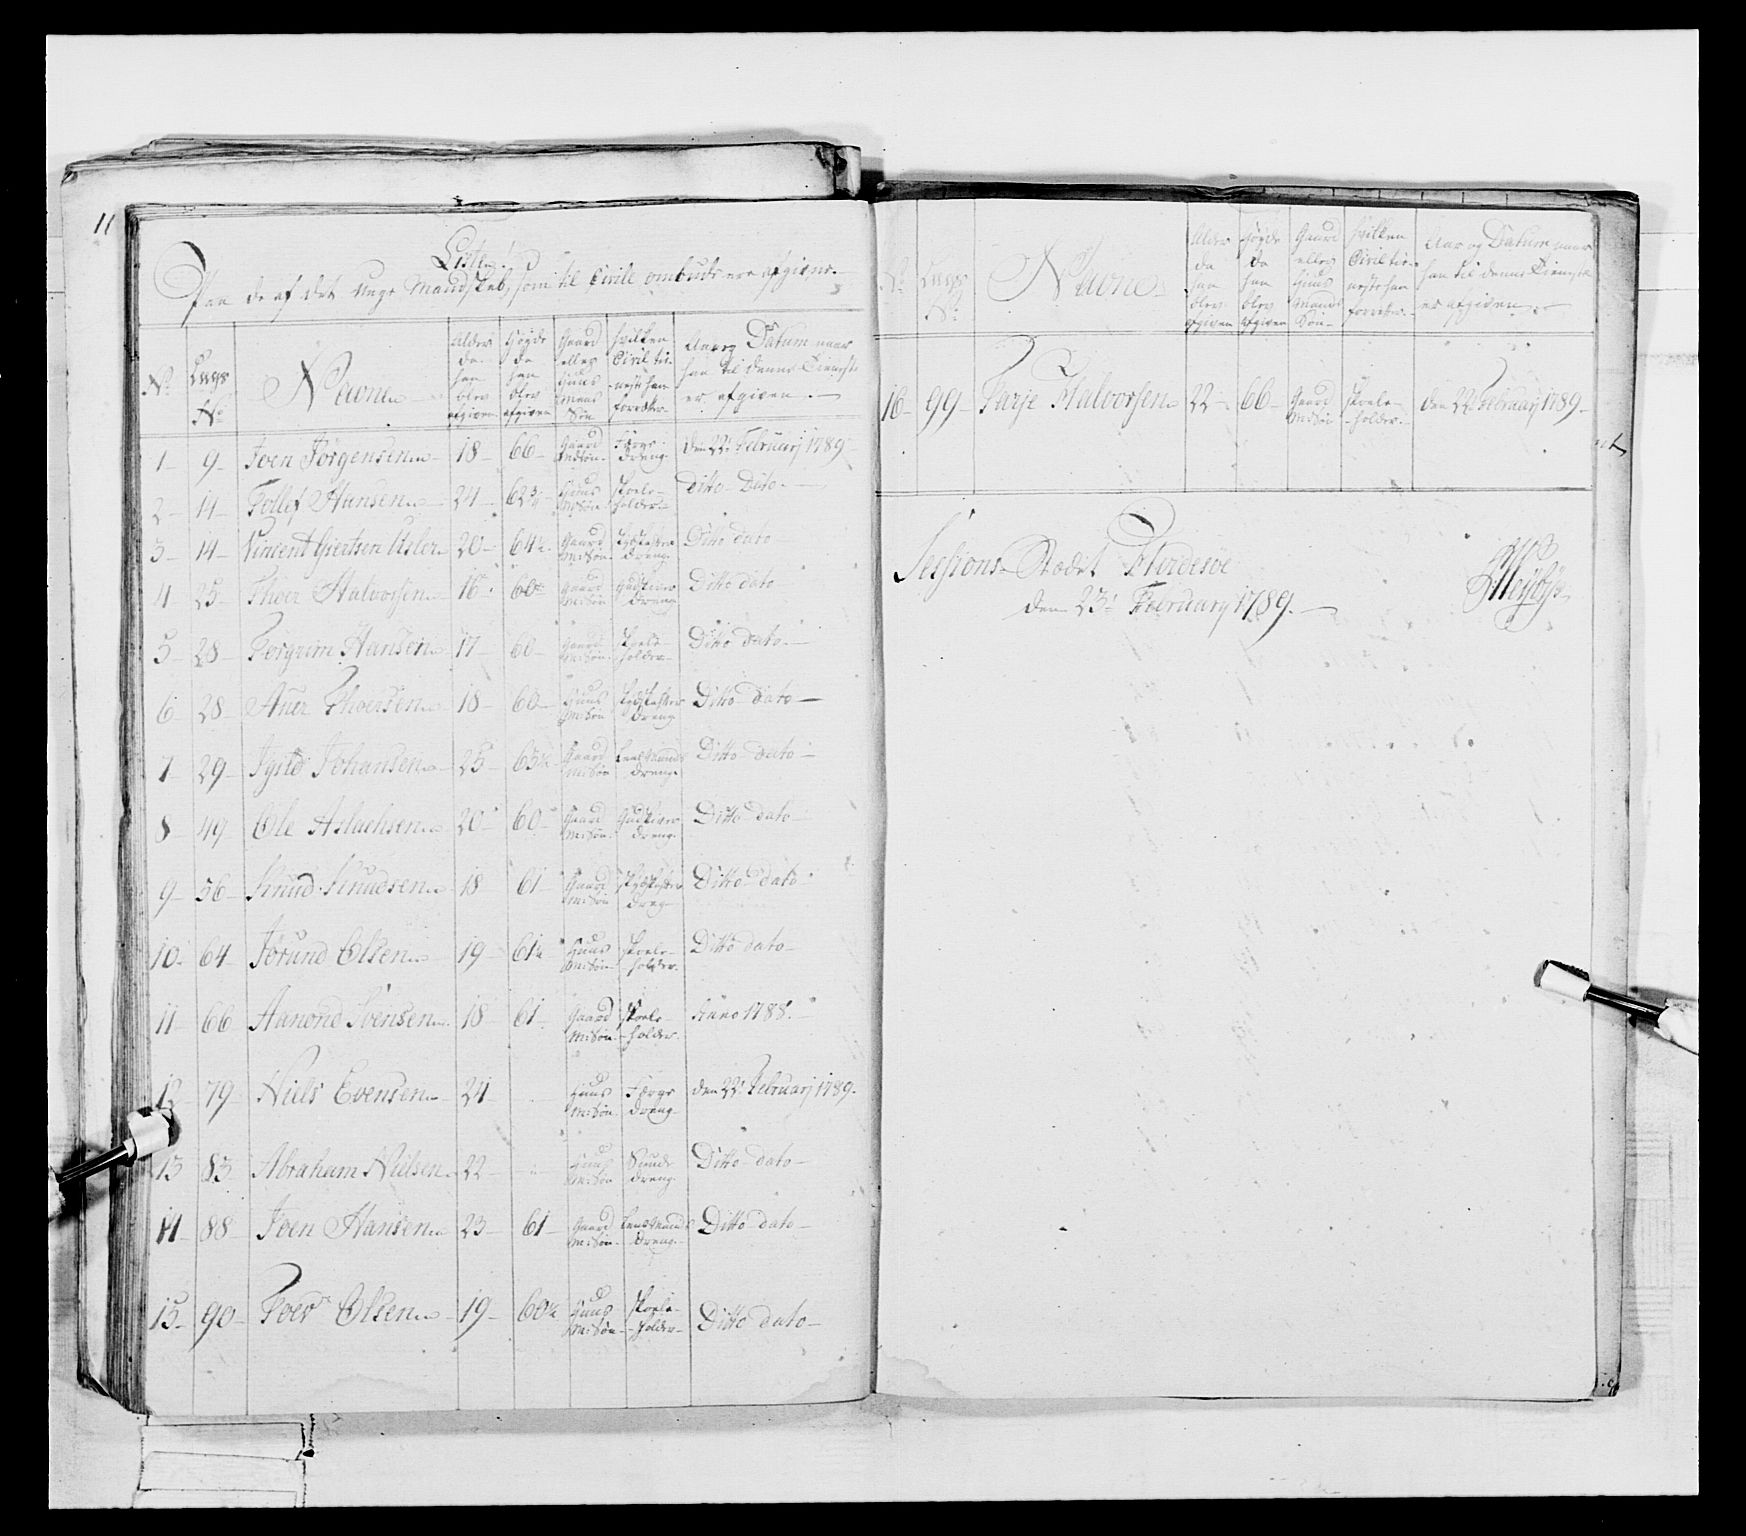 11
Liste
Paa de af det unge Mandskab, som til Civile ombuds ere afgivne.
No. Lægs No. Navne Alder da han blev afgiven Høyde da han blev afgiven Gaard eller Huus Mans Søn hvilken Civil tieneste han forretter Aar og Datum naar han til denne Tieneste er afgiven
1 9 Joen Jörgensen 18 66 Gaard Mdsøn Færge dreng den 22de Februarj 1789
2 11 Tollef Hansen 24 62 Huus M:Søn Skole-holder Ditto Dato
3 14 Vincent Giertsen 20 64 Gaard M:Søn dreng Ditto dato
4 25 Thoer Halvorsen 16 60 Gaard M:Søn Gudskiver dreng Ditto dato
5 28 Torgrim Hansen 17 60 Gaard M:Søn Skole holder Ditto dato
6 28 Aner Thoersen 18 60 Huus M:Søn Skydskaffer dreng Ditto dato
7 29 Johansen 25 63 Gaard M:Søn Lensmands dreng Ditto dato
8 49 Ole Aslachsen 20 60 Gaard M:Søn Gudskiver dreng Ditto dato
9 56 Knud Knudsen 18 61 Gaard M:Søn Skydskaffer dreng Ditto dato
10 64 Jörund Olsen 19 61 1/4 Huus M:Søn Skole-holder Ditto dato
11 66 Aanond Svensen 18 61 Gaard M:Søn Skole-holder Anno 1788.
12 79 Niels Evensen 24 Huus M:Søn Færge dreng den 22de Februarj 1789.
13 83 Abraham Nielsen 22 Huus M:Søn dreng Ditto dato
14 88 Joen Hansen 23 61 Gaard M:Søn Lensmands dreng Ditto dato
15 90 Toer Olsen 19 60 1/4 Huus M:Søn Skole-holder Ditto dato
No. Lægs No. Navne Alder da han blev afgiven Høyde da han blev afgiven Gaard eller Huus Mands Søn hvilken Civil tieneste han forretter Aar og Datum naar han til denne Tieneste er afgiven
16 99 Tarje Halvorsen 22 66 Gaard MdSøn Skole-holder den 22 Februarj 1789
Sessions-Stædet Hvidesöe
den 23de February 1789.